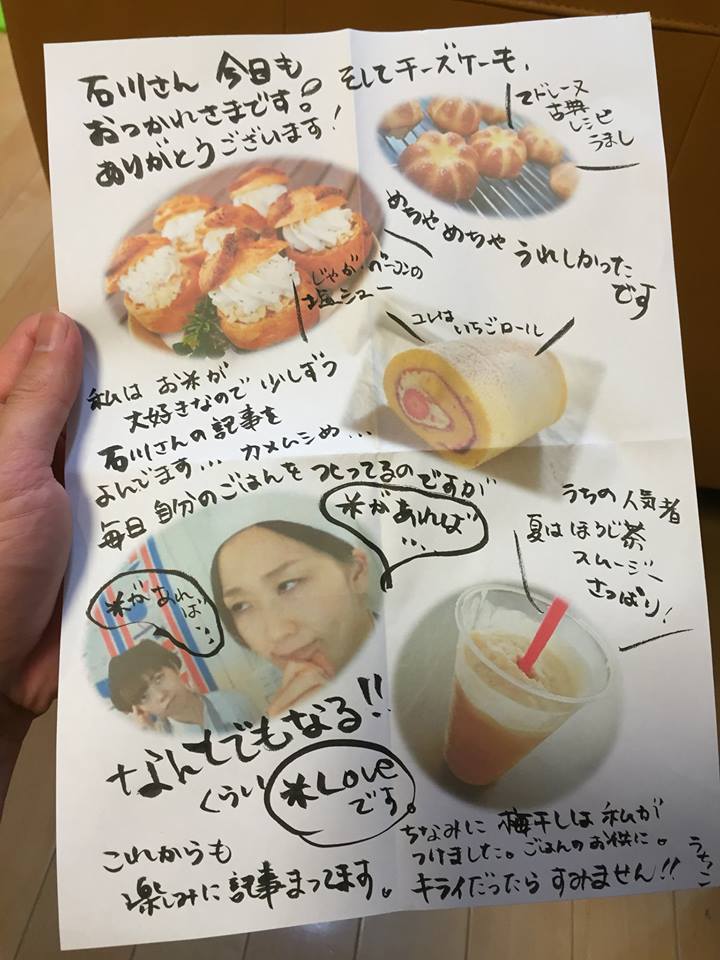 石川さん 今日も
おつかれさまです。
ありがとうございます!
そしてチーズケーキ、
マドレーヌ
古典
レシピ
うまし
めちゃめちゃ うれしかった
です
じゃが・ベーコンの
塩シュー
コレは いちごロール
私は お米が
大好きなので 少しずつ
石川さんの記事を
よんでます… カメムシめ…
毎日 自分のごはんをつくってるのですが
米があれば
…
米があれば…
なんでもなる!!
くらい
米Love
です。
うちの人気者
夏は ほうじ茶
スムージー
さっぱり!
これからも
楽しみに記事まってます。
ちなみに 梅干しは 私が
つけました。ごはんのお供に。
キライだったら すみません!!
うちこ